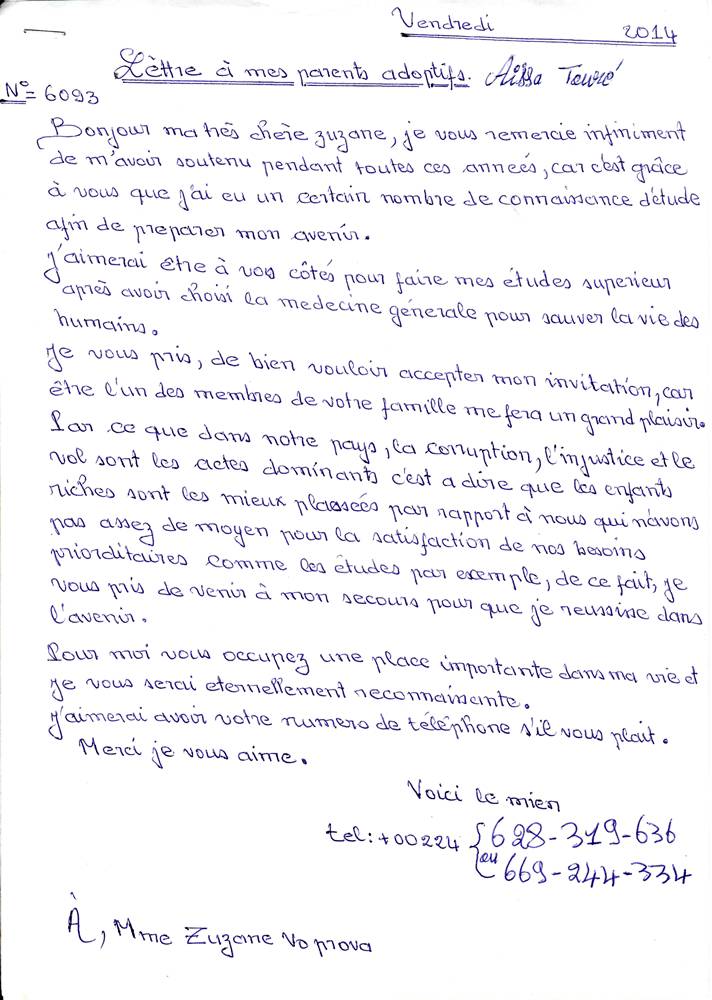 Vendredi 2014
Lèttre à mes parents adoptifs. Aïssa Touré
N°= 6093
Bonjour ma très chère zuzane, je vous remercie infiniment
de m'avoir soutenu pendant toutes ces anneés, car c'est grâce
à vous que j'ai eu un certain nombre de connaissance d'étude
afin de preparer mon avenir.
J'aimerai être à vos côtés pour faire mes études superieur
après avoir choisi la medecine génerale pour sauver la vie des
humains.
Je vous pris, de bien vouloir accepter mon invitation, car
être l'un des membres de votre famille me fera un grand plaisir.
Par ce que dans notre pays, la corruption, l'injustice et le
vol sont les actes dominants c'est a dire que les enfants
riches sont les mieux plassées par rapport à nous qui n'avons
pas assez de moyen pour la satisfaction de nos besoins
priorditaires comme les études par exemple, de ce fait, je
vous pris de venir à mon secours pour que je reussisse dans
l'avenir.
Pour moi vous occupez une place importante dans ma vie et
je vous serai eternellement reconnaissante.
J'aimerai avoir votre numero de téléphone s'il vous plait.
Merci je vous aime.
Voici le mien
tel: +00224 628-319-636
ou 669-244-334
À, Mme Zuzane Voprova